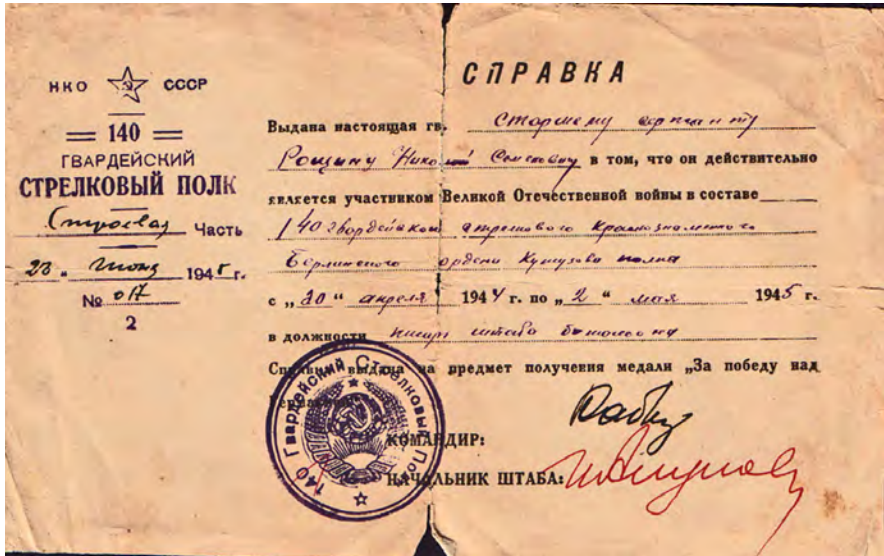 НКО СССР
140
ГВАРДЕЙСКИЙ
СТРЕЛКОВЫЙ ПОЛК
Строевая Часть
23 „ июня 1945 г.
№ 017
2
СПРАВКА
Выдана настоящая гв. старшему сержанту
Рощину Николаю в том, что он действительно
является участником Великой Отечественной войны в составе
140 гвардейского стрелкового Краснознаменного
Берлинского ордена Кутузова полка
с „30“ апреля 1944 г. по „2“ мая 1945 г.
в должности писарь штаба батальона
Справка выдана на предмет получения медали „За победу над
КОМАНДИР:
НАЧАЛЬНИК ШТАБА:
140 Гвардейский Стрелковый Полк